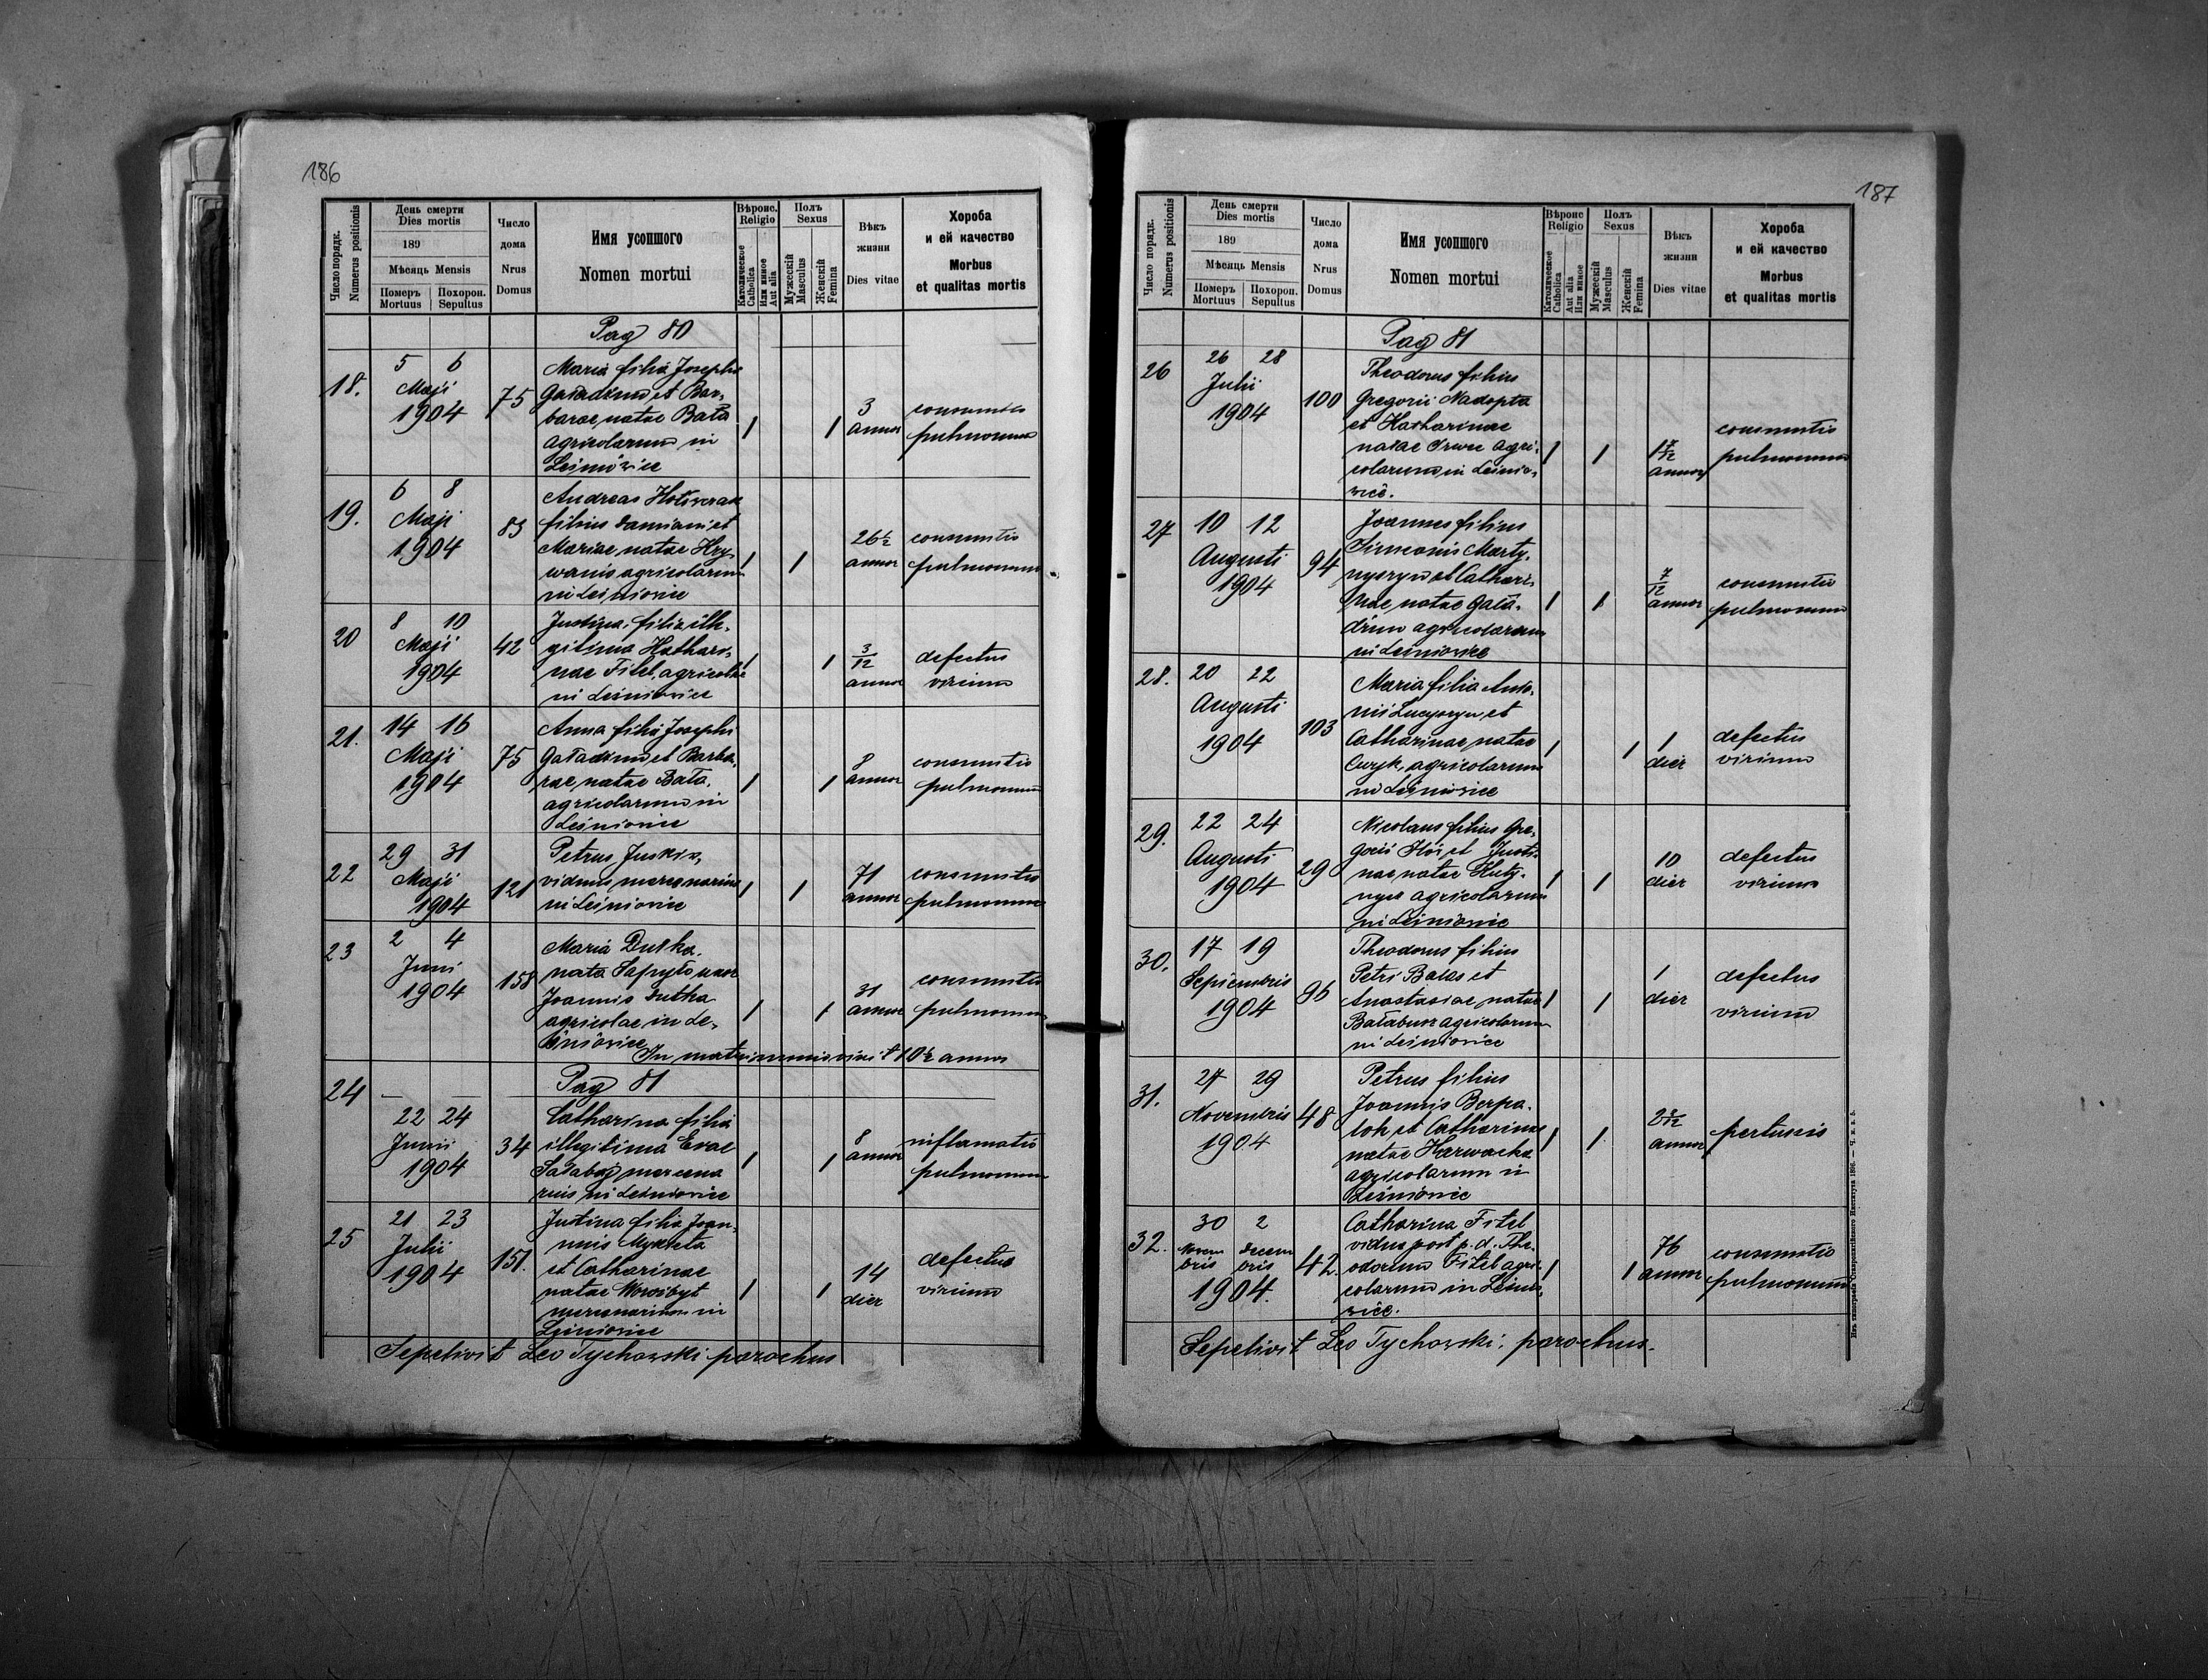 186
Число порядк.
Numerus positionis
День смерти
Dies mortis
189
Мѣсяцъ Mensis
Померъ
Mortuus
Похорон.
Sepultus
Число
дома
Nrus
Domus
Имя усопшого
Nomen mortui
Вѣроис.
Religio
Католическое
Catholica
Или инное
Aut alia
Полъ
Sexus
Мужескій
Masculus
Женскій
Femina
Вѣкъ
жизни
Dies vitae
Хороба
и ей качество
Morbus
et qualitas mortis
Pag 80
18.
5 6
Maji
1904
75
Maria filia Josephi
Gaładzun et Bar-
barae natae Bata
agricolarum in
Leśniowice
1
1
3
annor
consumtio
pulmonum
19.
6 8
Maji
1904
83
Andreas
filius Damiani et
Mariae natae Hry
wanis agricolarum
in Leśniowice
1
1
26½
annor
consumtio
pulmonum
20
8 10
Maji
1904
42
Justina, filia ille-
gitima Kathari-
nae Fitel, agricolae
in Leśniowice
1
1
3/12
annor
defectus
virium
21.
14 16
Maji
1904
75
Anna filia Josephi
Gaładzun et Barba-
rae, natae Bata,
agricolarum in
Leśniowice
1
1
8
annor
consumtio
pulmonum
22
29 31
Maji
1904
121
Petrus Juskiw,
viduus, mercenarius
in Leśniowice
1
1
71
annor
consumtio
pulmonum
23
2 4
Juni
1904
158
Maria Dutka,
nata Sapryło uxor
Joannis Dutka
agricolae in Le-
śniowice
1
1
31
annor
consumtio
pulmonum
In matrimonio vixit 10½ annos
24
Pag 81
22 24
Junii
1904
34
Catharina filia
illegitima Evae
Sałabaj mercena
riis in Leśniowice
1
1
8
annor
inflamatio
pulmonum
25
21 23
Julii
1904
151.
Justina filia Joan-
nis Mykieta
et Catharinae
natae Worobyt
mercenariorum in
Leśniowice
1
1
14
dier
defectus
virium
Sepelivit Leo Tychowski parochus
187
Число порядк.
Numerus positionis
День смерти
Dies mortis
189
Мѣсяцъ Mensis
Померъ
Mortuus
Похорон.
Sepultus
Число
дома
Nrus
Domus
Имя усопшого
Nomen mortui
Вѣроис
Religio
Католическое
Catholica
Aut alia
Или инное
Полъ
Sexus
Мужескій
Masculus
Женскій
Femina
Вѣкъ
жизни
Dies vitae
Хороба
и ей качество
Morbus
et qualitas mortis
Pag 81
26
26 28
Julii
1904
100
Theodorus filius
Gregorii Nadopta
et Katharinae
natae agri-
colarum in Leśnio-
wice.
1
1
annor
consumtio
pulmonum
27
10 12
Augusti
1904
94
Joannes filius
Simeonis Marty-
nyszyn et Cathari-
nae natae Gała-
dżun agricolarum
in Leśniowice
1
1
7/12
annor
consumtio
pulmonum
28.
20 22
Augusti
1904
103
Maria filia Anto-
nii et
Catharinae, natae
Cuzyk, agricolarum
in Leśniowice
1
1
1
dier
defectus
virium
29.
22 24
Augusti
1904
29
Nicolaus filius Gre-
gorii et Justi-
nae natae Huty-
nycz agricolarum
in Leśniowice
1
1
10
dier
defectus
virium
30.
17 19
Septembris
1904
96
Theodorus filius
Petri Balas et
Anastasiae, natae
Bałabuch agricolarum
in Leśniowice
1
1
1
dier
defectus
virium
31.
27 29
Novembris
1904
48
Petrus filius
Joannis Berpa-
loh et Catharinae
natae Harwacka
agricolarum in
Leśniowice
1
1
annor
pertussis
32.
30 2
Novem Decem
bris bris
1904.
42.
Catharina Fitel
vidua post p. d. The-
odorum Fitel agri-
colarum in Leśnio-
wice.
1
1
76
annor
consumtio
pulmonum
Sepelivit Leo Tychowski, parochus.
Изъ типографіи Ставропигійского Института 1896. — Ч. к. з. 5.